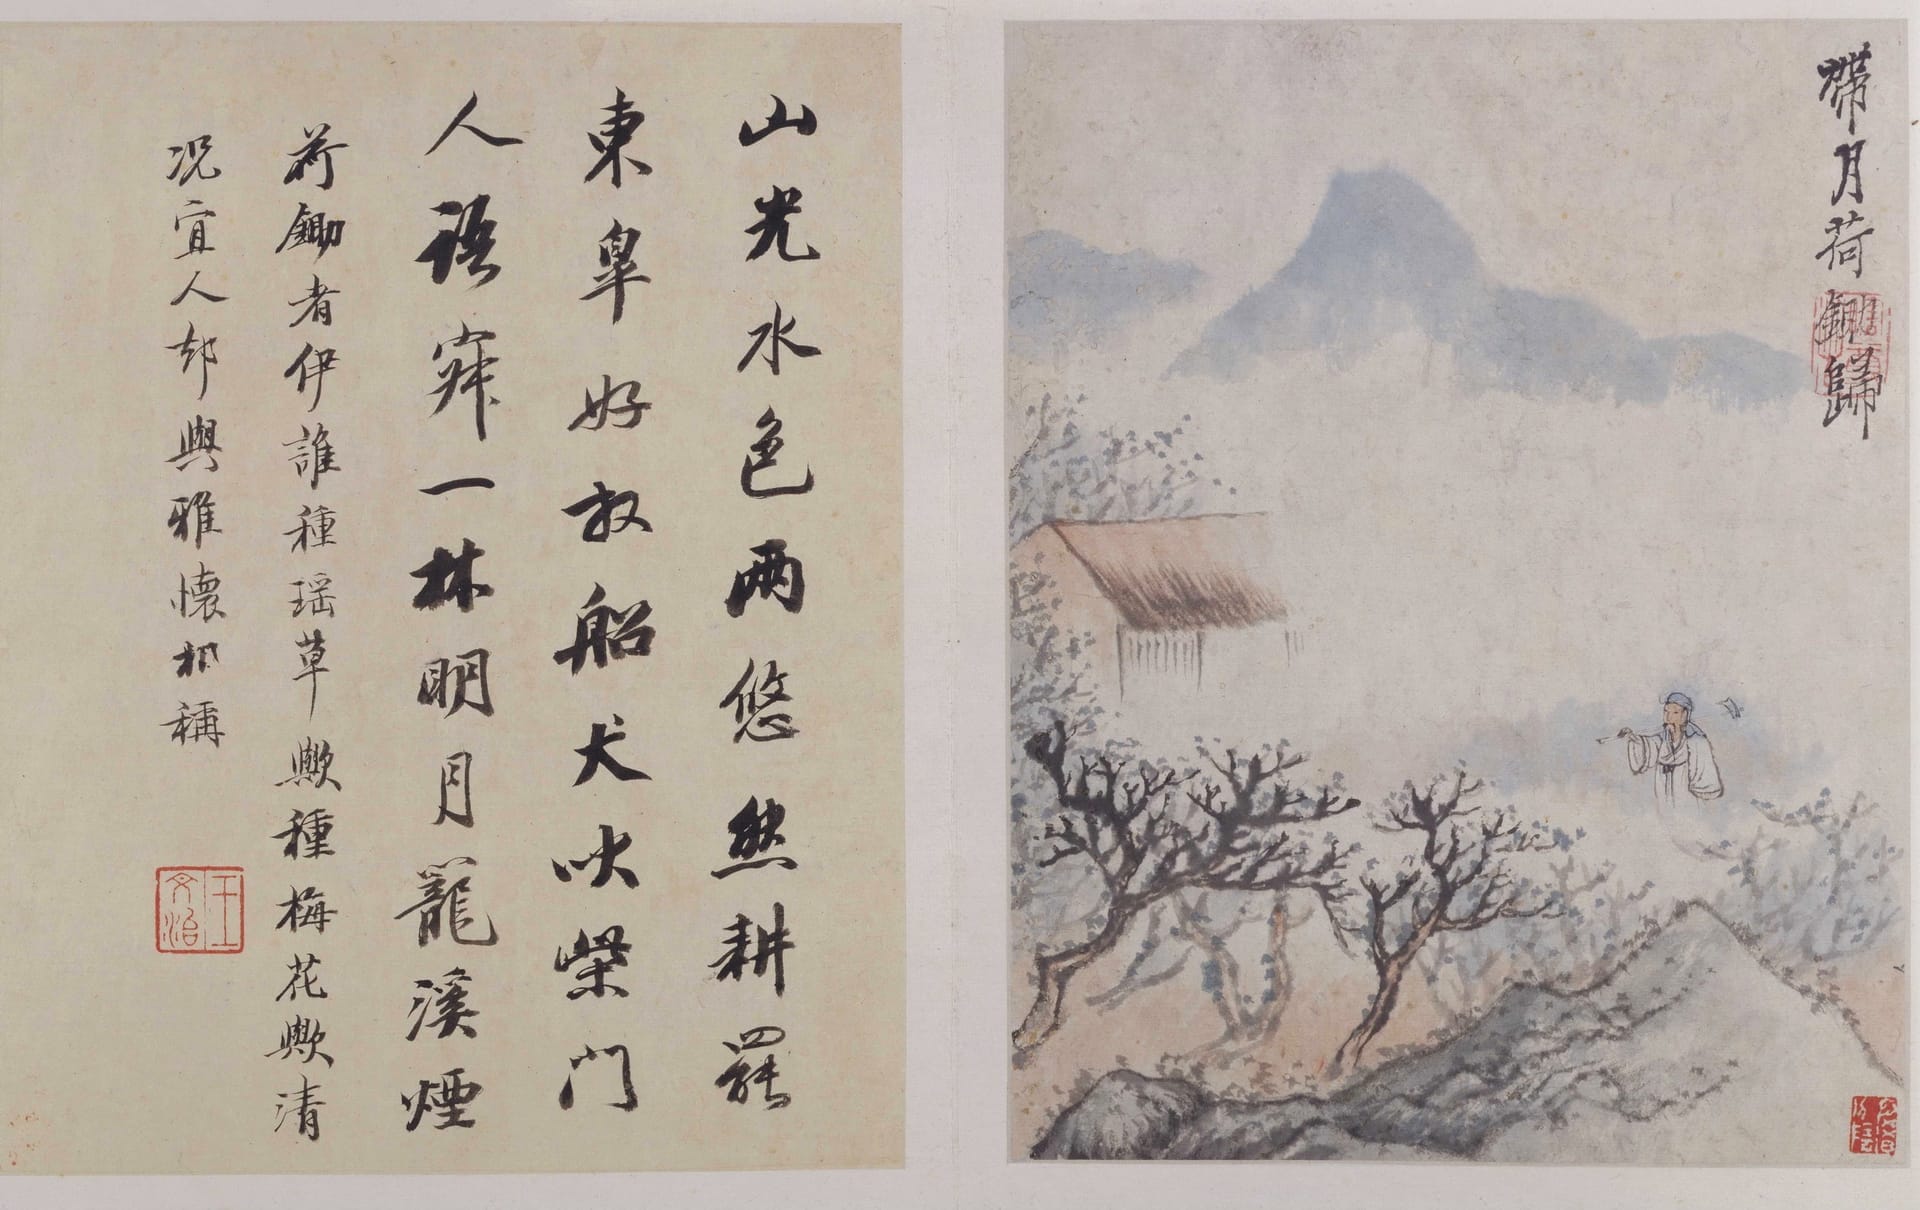 帶月荷鋤歸
山光水色两悠然耕罷
東皋好放船犬吠柴門
人語寂一林明月籠溪煙
荷鋤者伊誰種瑶草歟種梅花歟清
况宜人却與雅懷相稱
王文治